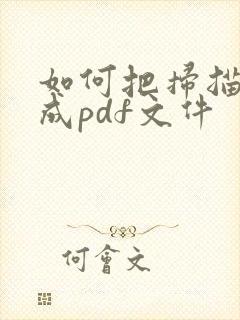 如何把掃描
成pdf文件
何會文